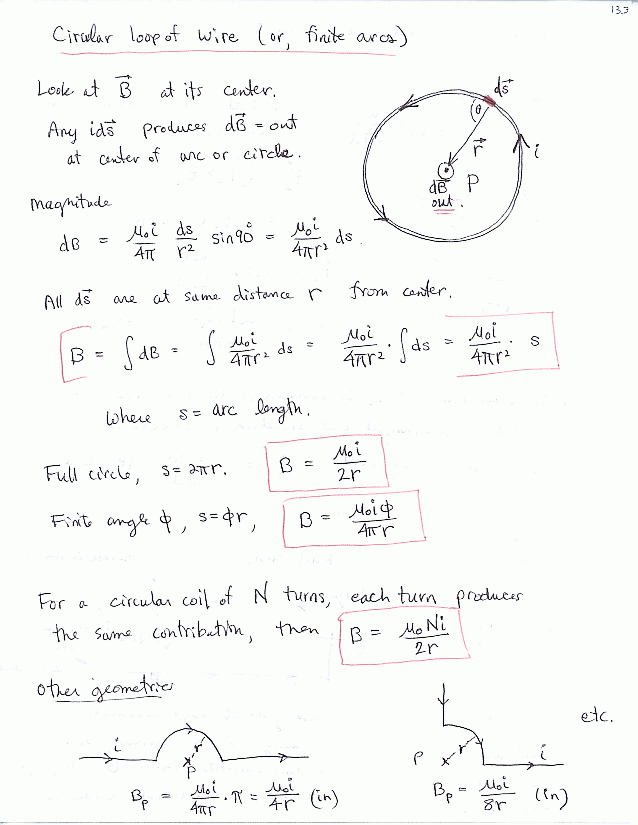 13.3
Circular loop of wire (or, finite arcs)
Look at B⃗ at its center.
Any ids⃗ produces dB⃗ = out
at center of arc or circle.
ds⃗
θ
r⃗
i
dB⃗ P
out.
Magnitude
dB = μ₀i/4π ds/r² sin90° = μ₀i/4πr² ds.
All ds⃗ are at same distance r from center.
B = ∫dB = ∫ μ₀i/4πr² ds = μ₀i/4πr² · ∫ds = μ₀i/4πr² · s
Where s = arc length.
Full circle, s = 2πr. B = μ₀i/2r
Finite angle φ, s = φr, B = μ₀iφ/4πr
For a circular coil of N turns, each turn produces
the same contribution, then B = μ₀Ni/2r
Other geometries
i
r
P
B_P = μ₀i/4πr · π = μ₀i/4r (in)
P
r
i
B_P = μ₀i/8r (in)
etc.